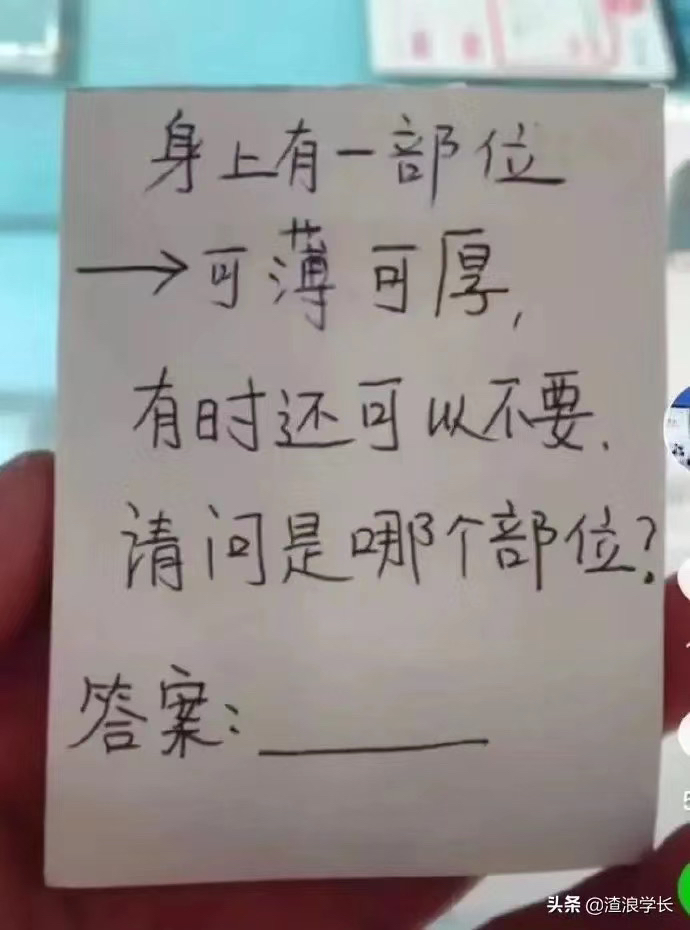 身上有一部位
→可薄可厚,
有时还可以不要.
请问是哪个部位?
答案:
头条 @渣浪学长